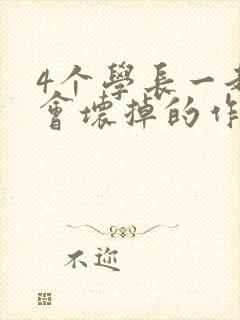 4个學長一
會壞掉的作
不迩